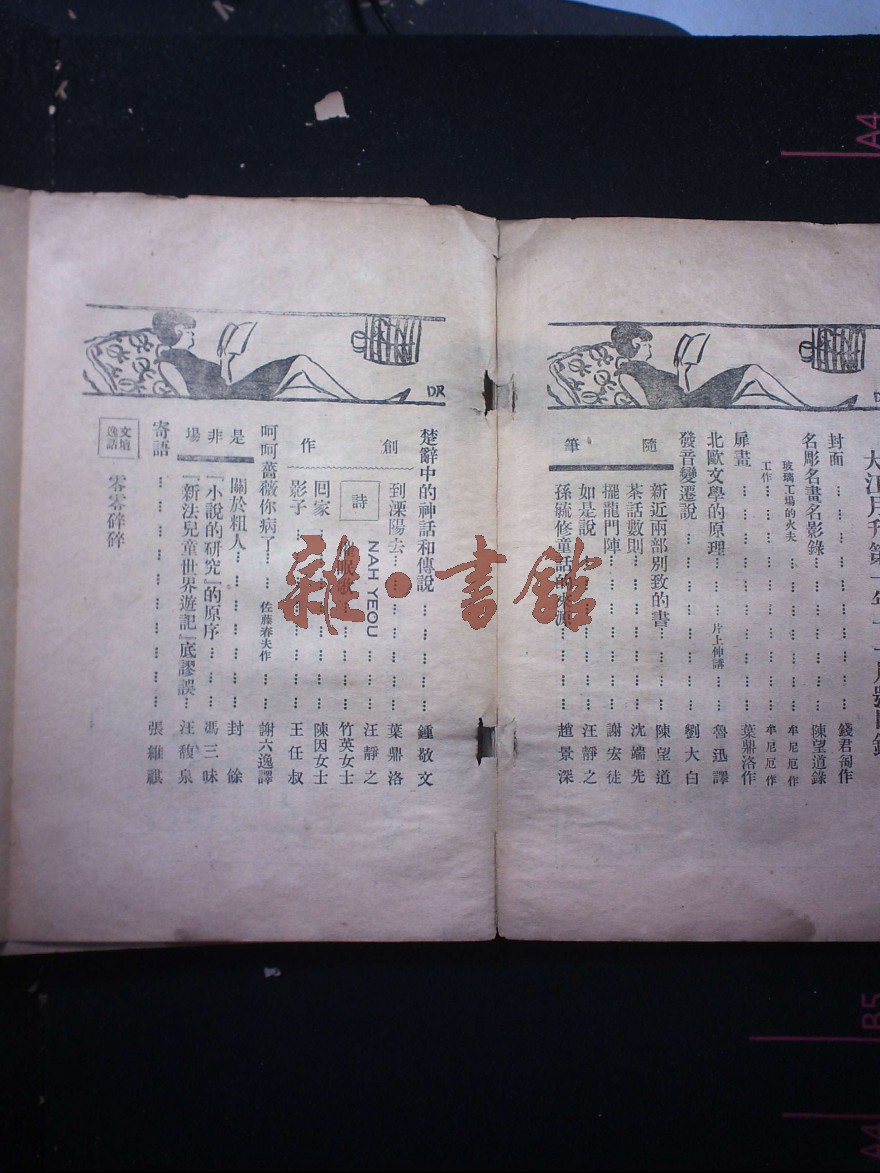 大江月刊第一年十一月號目錄
封面 錢君匋作
名彫名畫名影錄 陳望道錄
玻璃工場的火夫 牟尼厄作
工作 牟尼厄作
扉畫 葉鼎洛作
北歐文學的原理 片上伸講 魯迅譯
發音變遷說 劉大白
隨筆
新近兩部別致的書 陳望道
茶話數則 沈端先
擺龍門陣 謝宏徒
如是說 汪靜之
孫毓修童話的來源 趙景深
楚辭中的神話和傳說 鍾敬文
創作
到溧陽去 葉鼎洛
詩
NAH YEOU 汪靜之
竹英女士
回家 陳因女士
影子 王任叔
呵呵薔薇你病了 佐藤春夫作 謝六逸譯
是非場
關於粗人 封餘
『小說的研究』的原序 馮三昧
『新法兒童世界遊記』底謬誤 汪馥泉
寄語 張維祺
文壇逸話
零零碎碎
DR
雜·書館
A4
B5
A4